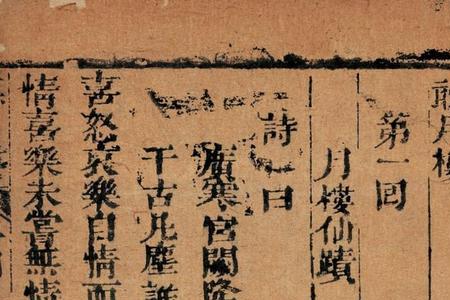 月樓
第一回
月樓仙蹟
詩曰
廣寒宮闕
千古凡塵誰
喜怒哀樂自情而
情喜樂未嘗無情